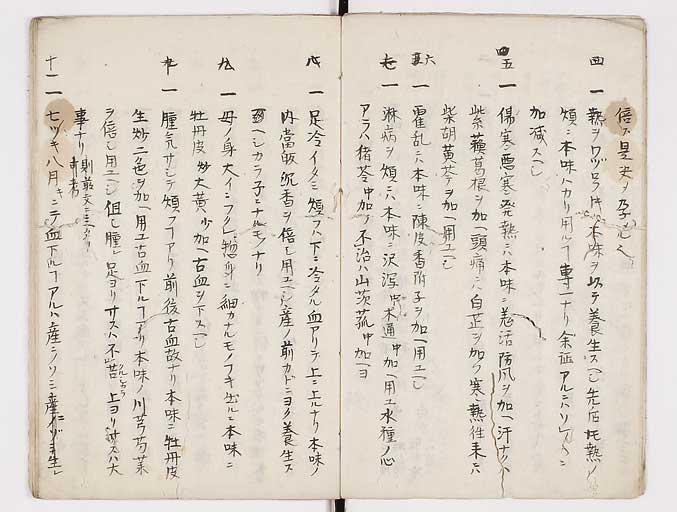 四 一 熱ヲワヅロウ片ハ本味ヲ以テ養生スヘシ先后共熱ノ
煩ニハ本味ハカリ用ル丁専一ナリ余証アルニハ
加減スヘシ
五 一 傷寒悪寒発熱ニハ本味ニ羌活防風ヲ加ヘ汗ナクハ
紫蘓葛根ヲ加ヘ頭痛ニハ白芷ヲ加ヘ寒熱往来ニハ
柴胡黄芩ヲ加ヘ用ユヘシ
六 一 霍乱ニハ本味ニ陳皮香附子ヲ加ヘ用ユヘシ
七 一 淋病ヲ煩ニハ本味ニ沢瀉中木通中加ヘ用ユ水種ノ心
アラハ猪苓中加ヘ不治ハ山茨菰中加ヘヨ
八 一 足冷イタミ煩フハ下ニ冷タル血アリテ上ニ上ルナリ本味ノ
内當皈沉香ヲ倍シ用ユヘシ産ノ前カドニヨク養生ス
ヘシカラ子ニナルモノナリ
九 一 母ノ身大イニフクレ惣身ニ細カナルモノフキ出ルニ本味ニ
牡丹皮炒大黄少加ヘ古血ヲ下スヘシ
十 一 腫気サシテ煩フ丁アリ前後古血故ナリ本味ニ牡丹皮
生炒二色ヲ加ヘ用ユ古血下ル丁アリ本味ノ川芎芍薬
ヲ倍シ用ユヘシ但シ腫レ足ヨリサスハ不苦上ヨリサスハ大
事ナリ
十一 一 七ツキ八月ニテ血下ル丁アルハ産ニノソミ産